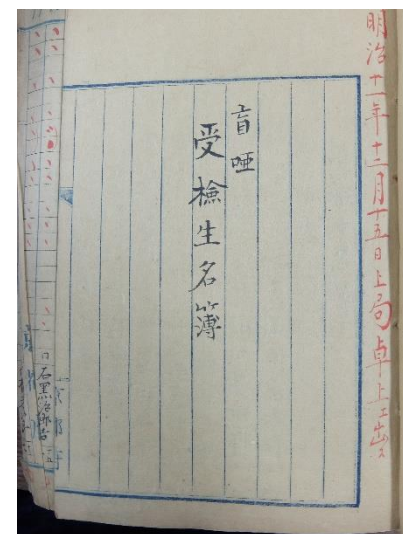 明治十一年十二月十五日上局卓上エ出ス
盲唖
受檢生名簿